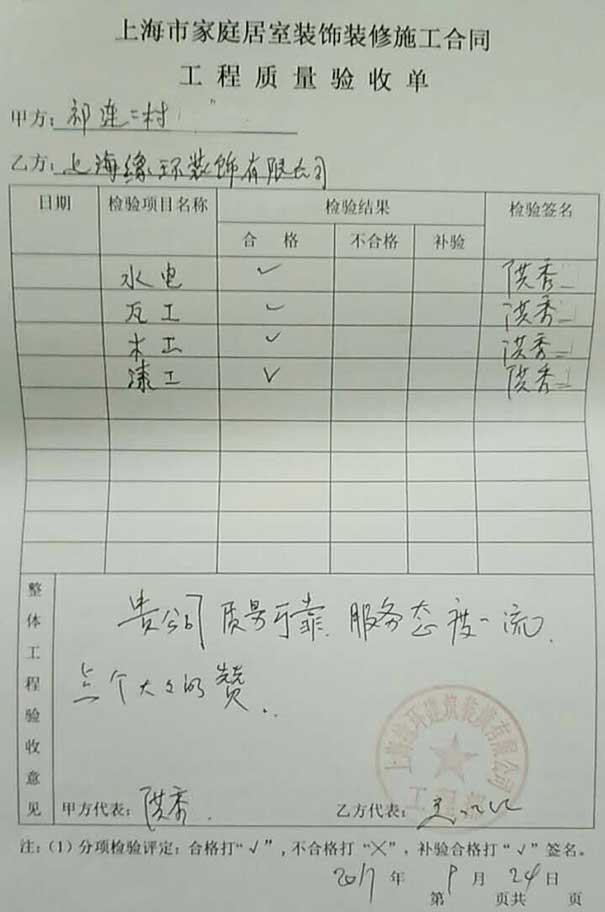 上海市家庭居室装饰装修施工合同
工程质量验收单
甲方：祁连二村
乙方：上海缘环装饰有限公司
日期 检验项目名称 检验结果 检验签名
合格 不合格 补验
水电 ✓
瓦工 ✓
木工 ✓
漆工 ✓
整体工程验收意见
贵公司质量可靠.服务态度一流.
点个大大的赞..
甲方代表： 乙方代表：
注：（1）分项检验评定：合格打“√”，不合格打“╳”，补验合格打“√”签名。
2017年9月24日
第 页共 页